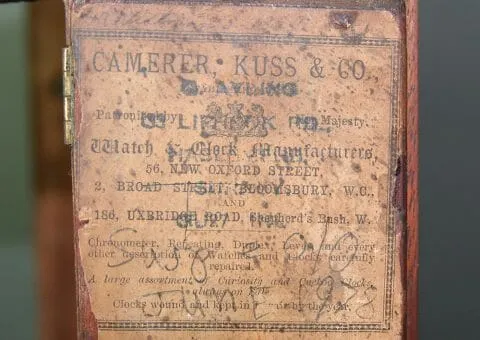 CAMERER, KUSS & CO.,
AYLING
Patronised by Her Majesty.
LIPHOOK RD.,
Watch & Clock Manufacturers,
56, NEW OXFORD STREET,
2, BROAD STREET, BLOOMSBURY, W.C.,
AND
186, UXBRIDGE ROAD, Shepherd's Bush, W.
GU27
Chronometer, Repeating, Duplex, Lever and every
other description of Watches and Clocks carefully
repaired.
A large assortment of Curiosity and Cuckoo Clocks
always on Sale.
Clocks wound and kept in repair by the year.